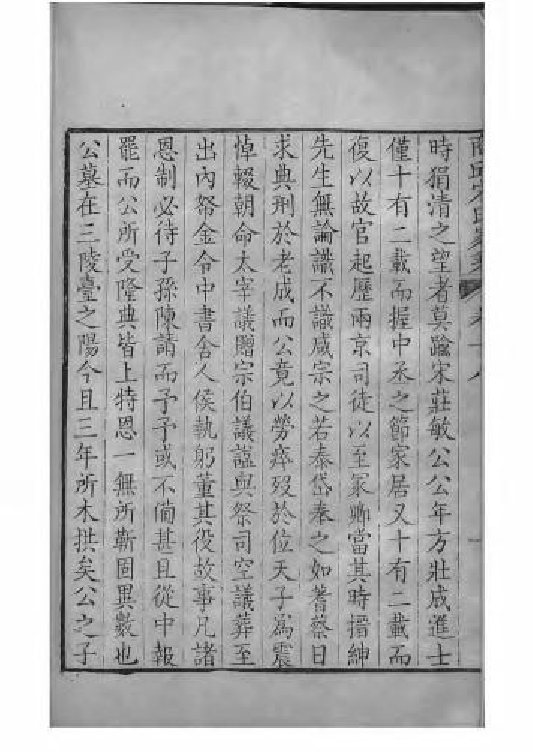 商丘宋氏家乘 卷十八
時狷清之望者莫踰宋莊敏公公年方壯成進士
僅十有二載而握中丞之節家居又十有二載而
復以故官起歷兩京司徒以至冢卿當其時搢紳
先生無論識不識咸宗之若泰岱奉之如蓍蔡日
求典刑於老成而公竟以勞瘁歿於位天子為震
悼輟朝命太宰議贈宗伯議諡與祭司空議葬至
出內帑金令中書舍人侯執躬董其役故事凡諸
恩制必待子孫陳請而予予或不備甚且從中報
罷而公所受隆典皆上特恩一無所靳固異數也
公墓在三陵臺之陽今且三年所木拱矣公之子